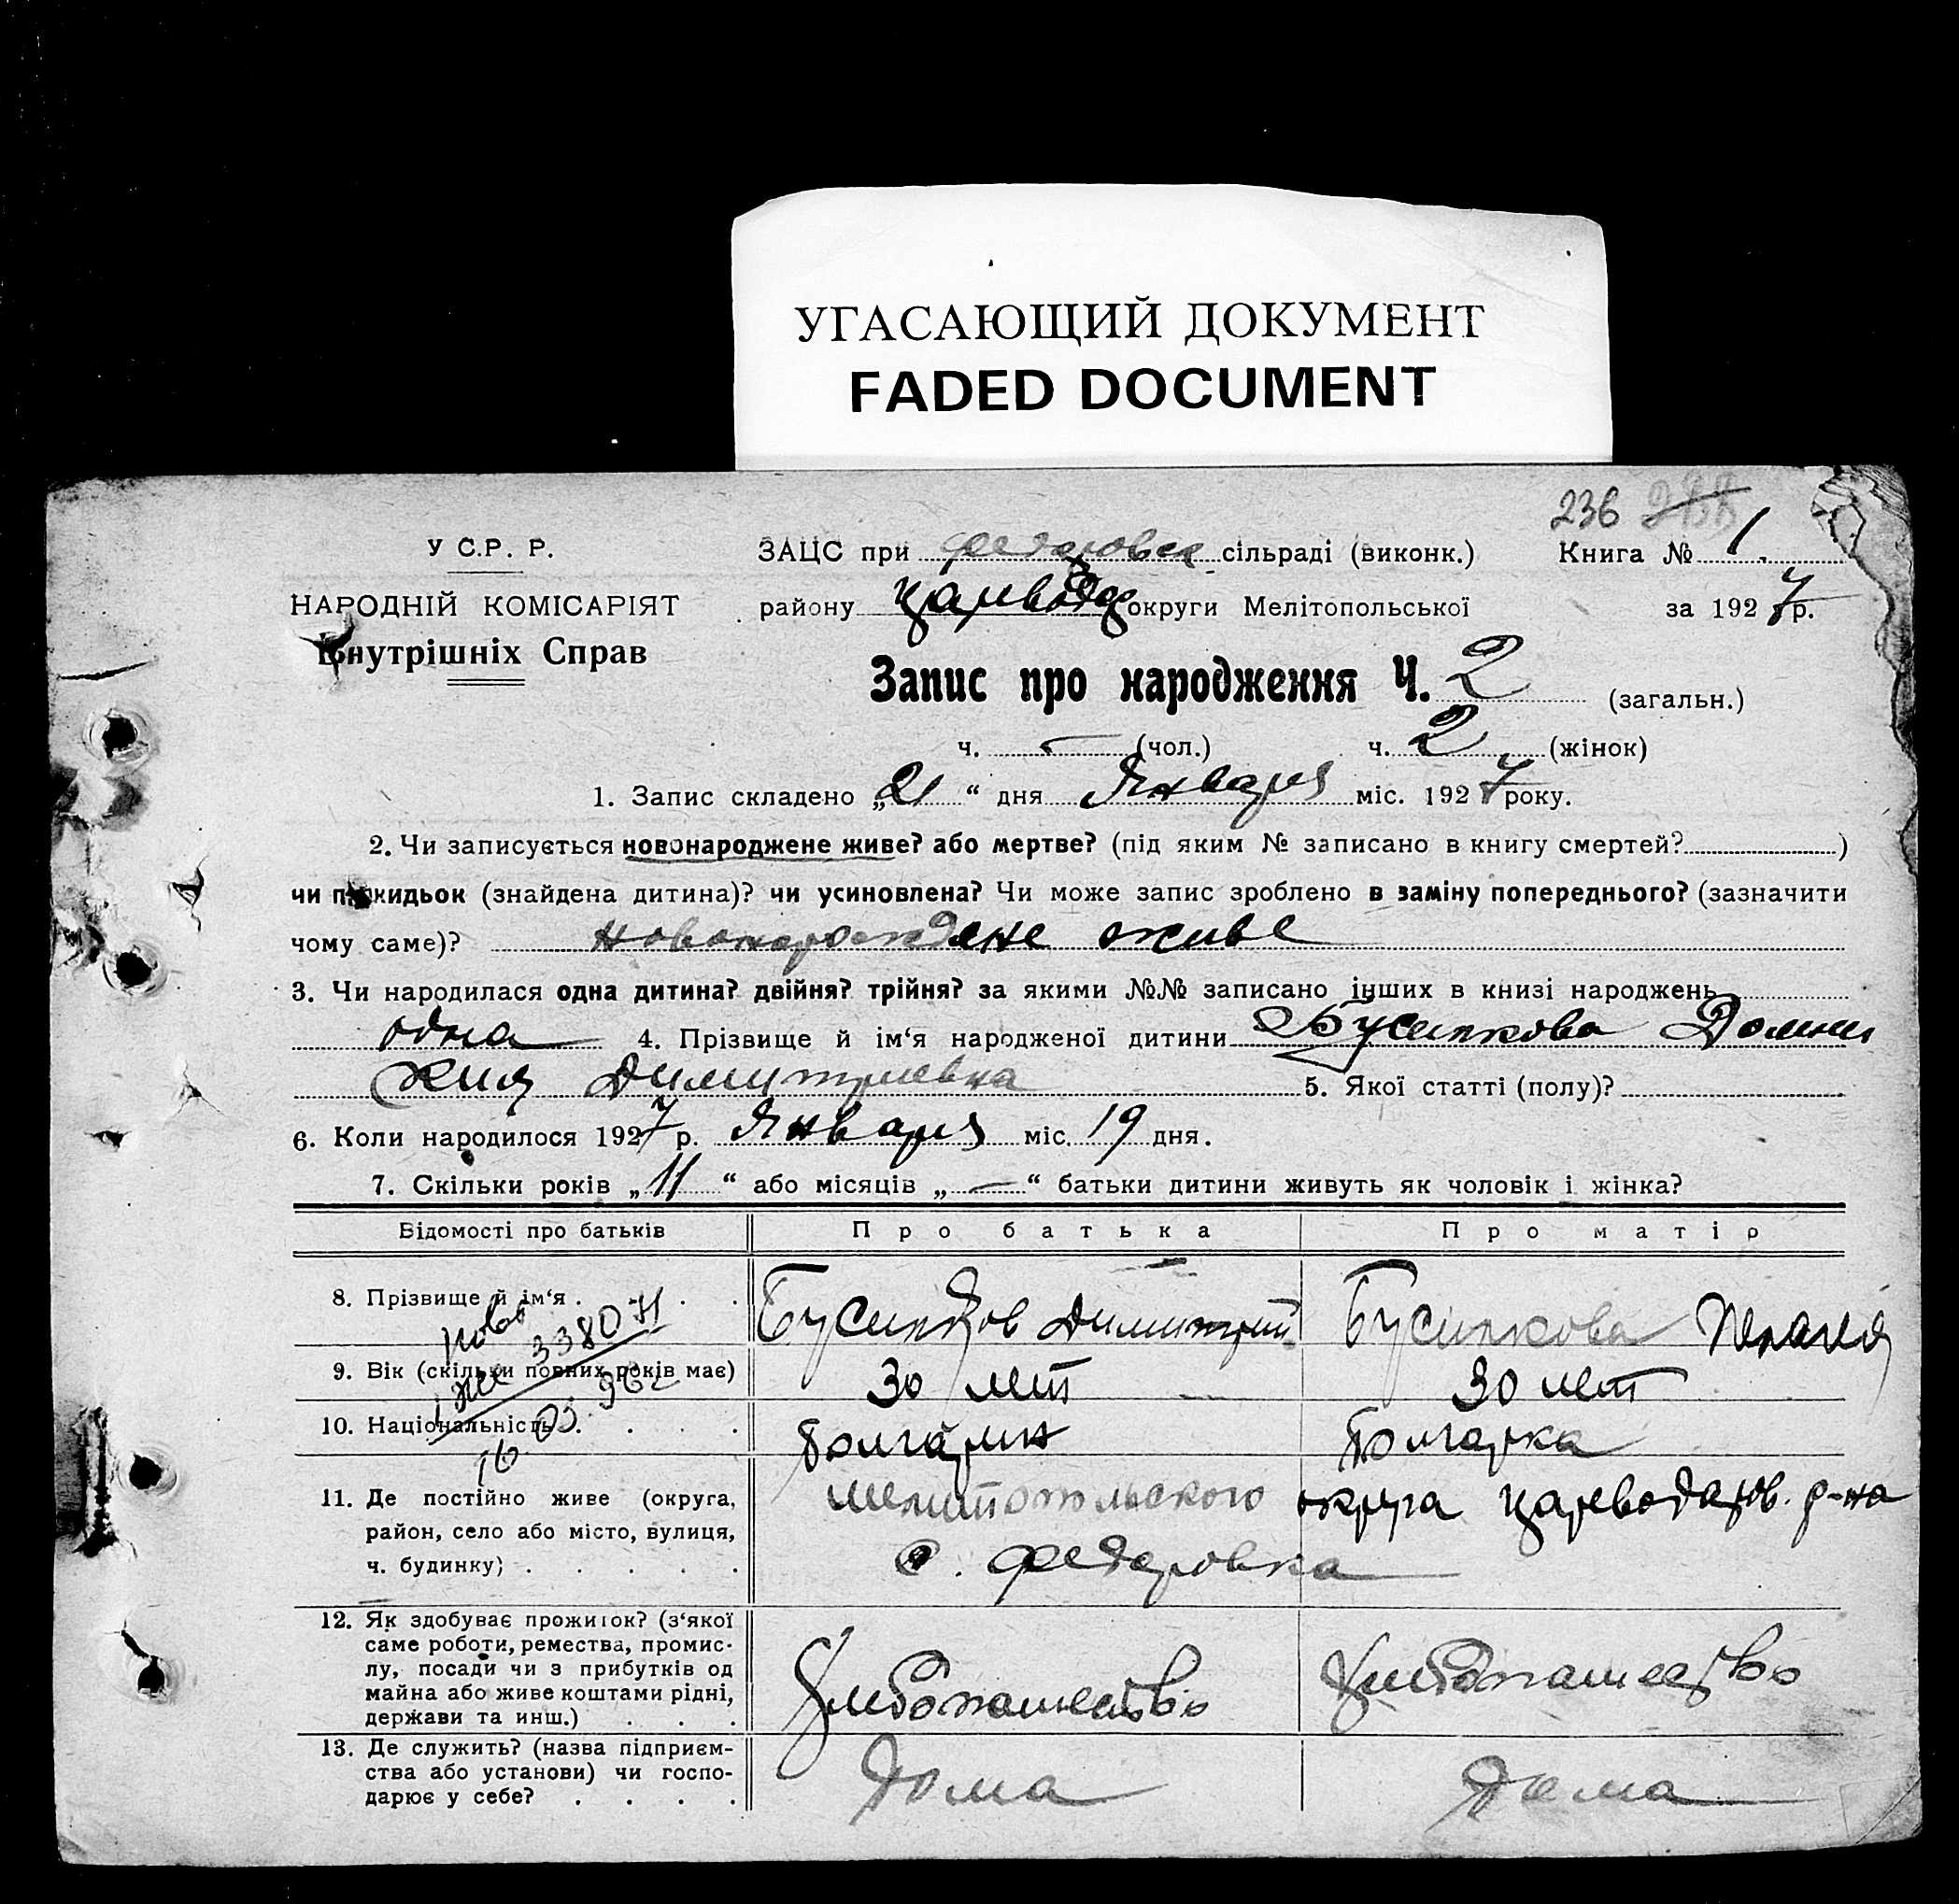 УГАСАЮЩИЙ ДОКУМЕНТ
FADED DOCUMENT
236
У С.Р. Р.
НАРОДНІЙ КОМІСАРІЯТ
Внутрішніх Справ
ЗАЦС при Федоровск сільраді (виконк.) Книга № 1.
району округи Мелітопольської за 1927 р.
Запис про народження Ч. 2 (загальн.)
ч. – (чол.) ч. 2 (жінок)
1. Запис складено „21“ дня Января міс. 1927 року.
2. Чи записується новонароджене живе? або мертве? (під яким № записано в книгу смертей? )
чи підкидьок (знайдена дитина)? чи усиновлена? Чи може запис зроблено в заміну попереднього? (зазначити
чому саме)? новонарождене живе
3. Чи народилася одна дитина? двійня? трійня? за якими №№ записано інших в книзі народжень
одна 4. Прізвище й ім‘я народженої дитини Бусилкова Домни
кия Димитриевна 5. Якої статті (полу)?
6. Коли народилося 1927 р. Января міс. 19 дня.
7. Скільки років „11“ або місяців „—“ батьки дитини живуть як чоловік і жінка?
Відомості про батьків Про батька Про матір
8. Прізвище й ім‘я . . . . Бусилков Димитрий Бусилкова
9. Вік (скільки повних років має) 30 лет 30 лет
10. Національність . . . . болгарин болгарка
11. Де постійно живе (округа, район, село або місто, вулиця, ч. будинку) . . . . . Мелитопольского округа Царводаров. р-на
с. Федоровка
12. Як здобуває прожиток? (з‘якої
саме роботи, ремества, промис-
лу, посади чи з прибутків од
майна або живе коштами рідні,
держави та инш.) . . . Хлебопашество Хлебопашество
13. Де служить? (назва підприєм-
ства або установи) чи госпо-
дарює у себе? . . . . Дома Дома